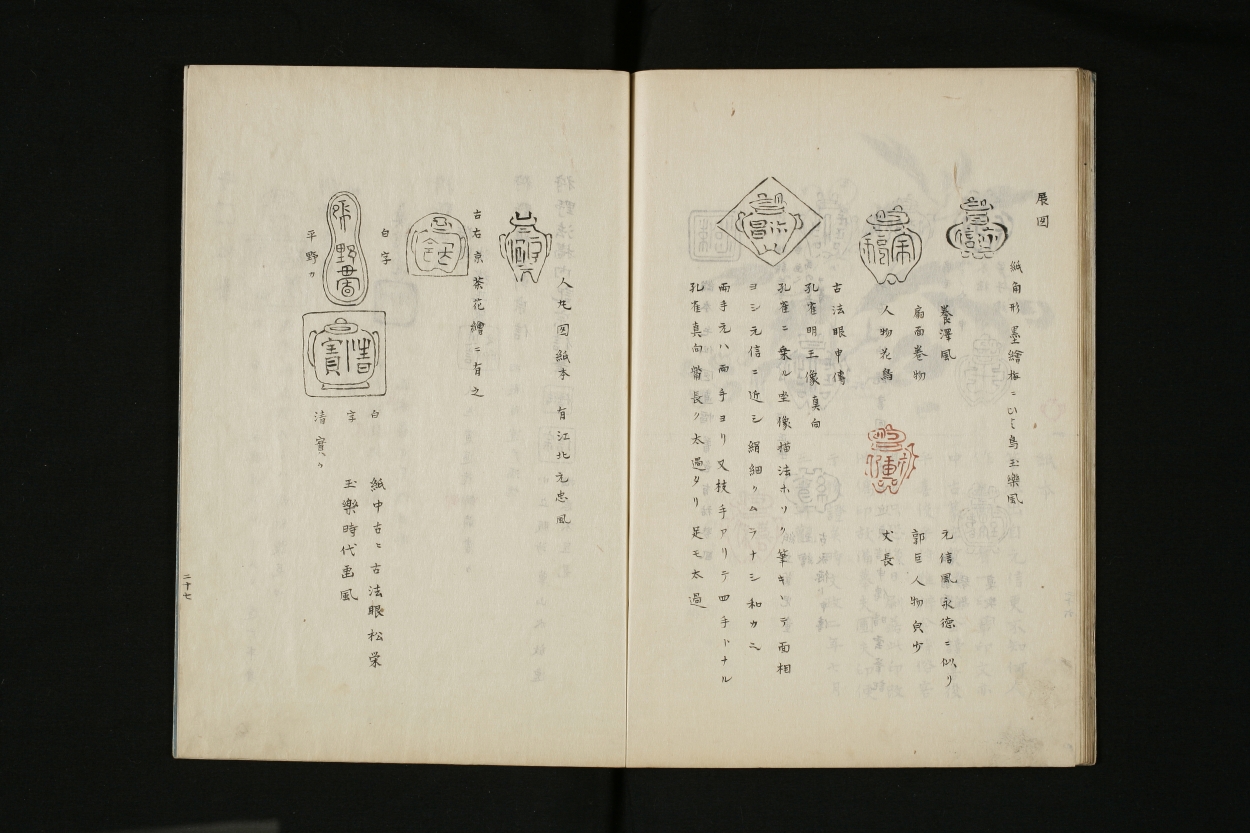 展図
紙角形墨繪梅ニいく鳥玉樂風
養澤風
扇面巻物
人物花鳥
元信風永德ニ似リ
郭巨人物皃少
丈長
古法眼申傳
孔雀明王像真向
孔雀ニ乗ル坐像描法ホソク筆キ テ面相
ヨシ元信ニ近シ絹細クムラナシ和カニ
両手元ハ両手ヨリ又枝手アリテ四手トナル
孔雀真向觜長ク太過タリ足モ太過
人尨図紙本 有江北元忠風
古右京葉花繪ニ有之
白字
平野カ
白字
清寳カ
紙中古ニ古法眼松栄
玉樂時代画風
二十七